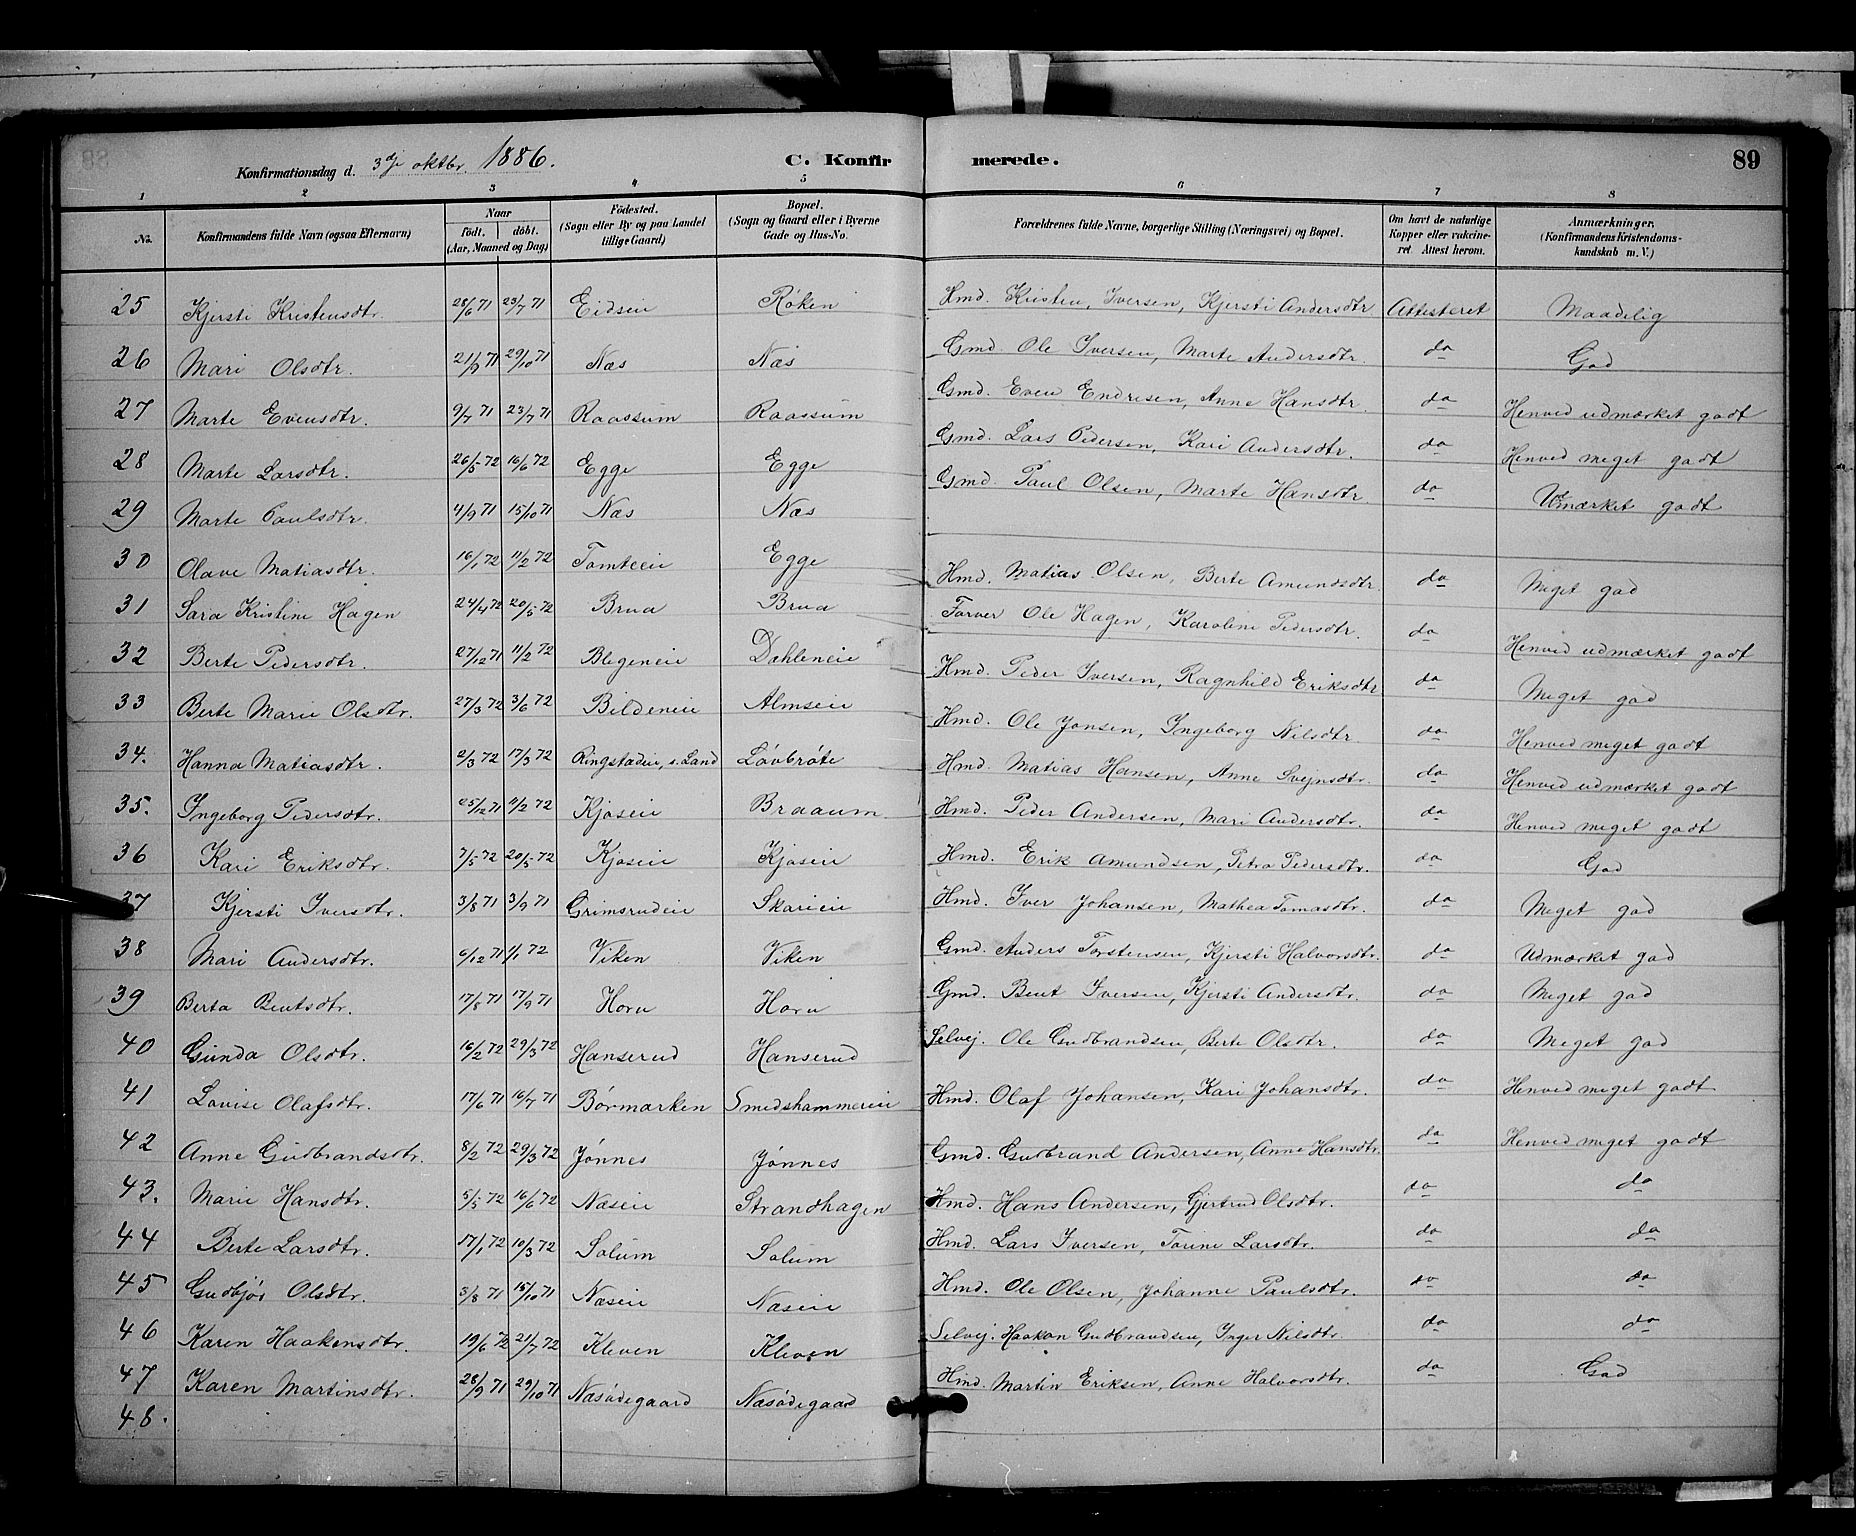 Konfirmationsdag d. 3die oktbr. 1886. C. Konfirmerede. 89
1 2 3 4 5 6 7 8
No. Konfirmandens fulde Navn (ogsaa Efternavn) Naar födt. döbt. (Aar, Maaned og Dag) Födested. (Sogn eller By og paa Landet tillige Gaard) Bopæl. (Sogn og Gaard eller i Byerne Gade og Hus-No. Forældrenes fulde Navne, borgerlige Stilling (Næringsvei) og Bopæl. Om havt de naturlige Kopper eller vakcineret. Attest herom. Anmærkninger. (Konfirmandens Kristendomskundskab m. V.)
25 Kjersti Kristensdtr. 28/6 71 23/7 71 Eidseie Røken Hmd. Kristen Iversen, Kjersti Andersdtr Attesteret Maadelig
26 Mari Olsdtr. 21/9 71 29/10 71 Næs Næs Gmd. Ole Iversen, Marte Andersdtr. do God
27 Marte Evensdtr. 9/7 71 23/7 71 Raassum Raassum Gmd. Even Endresen, Anne Hansdtr. do Henved udmærket godt
28 Marte Larsdtr. 26/5 72 16/6 72 Egge Egge Gmd. Lars Pedersen, Kari Andersdtr. do Henved meget godt
29 Marte Paulsdtr. 4/9 71 15/10 71 Næs Næs Gmd. Paul Olsen, Marte Hansdtr do Udmærket godt
30 Olave Matiasdtr. 16/1 72 11/2 72 Tomteeie Egge Hmd. Matias Olsen, Berte Amundsdtr. do Meget god
31 Sara Kristine Hagen 24/4 72 20/5 72 Brua Brua Farver Ole Hagen, Karoline Pedersdtr. do Henved udmærket godt
32 Berte Pedersdtr. 27/12 71 11/2 72 Blegeneie Dahleneie Hmd. Peder Iversen, Ragnhild Eriksdtr do Meget god
33 Berte Marie Olsdtr. 27/3 72 3/6 72 Bildeneie Almseie Hmd. Ole Jonsen, Ingeborg Nilsdtr do Henved meget godt
34. Hanna Matiasdtr. 2/3 72 17/3 72 Ringstadeie, s. Land Løvbrøte Hmd. Matias Hansen, Anne Svejnsdtr. do Henved udmærket godt
35. Ingeborg Pedersdtr. 25/12 71 11/2 72 Kjoseie Braaum Hmd. Peder Andersen, Mari Andersdtr. do Henved meget godt
36 Kari Eriksdtr. 7/5 72 20/5 72 Kjoseie Kjoseie Hmd. Erik Amundsen, Petra Pedersdtr. do God
37 Kjersti Iversdtr. 3/8 71 3/9 71 Grimsrudeie Skarieie Hmd. Iver Johansen, Mathea Tomasdtr. do Meget god
38 Mari Andersdtr. 6/12 71 1/1 72 Viken Viken Gmd. Anders Torstensen, Kjersti Halvorsdtr. do Udmærket god
39 Berta Bentsdtr. 17/8 71 17/9 71 Horn Horn Gmd. Bent Iversen, Kjersti Andersdtr. do Meget god
40 Gunda Olsdtr. 16/2 72 29/3 72 Hanserud Hanserud Selvej. Ole Gudbrandsen, Berte Olsdtr. do Meget god
41 Lovise Olafsdtr. 17/6 71 16/7 71 Børmarken Smedshammereie Hmd. Olaf Johansen, Kari Johansdtr. do Henved meget godt
42 Anne Gudbrandsdtr. 8/2 72 29/3 72 Jønnes Jønnes Gmd. Gudbrand Andersen, Anne Hansdtr. do Henved meget godt
43. Marie Hansdtr. 5/5 72 16/6 72 Næseie Strandhagen Hmd. Hans Andersen, Gjertrud Olsdtr. do do
44 Berte Larsdtr. 17/1 72 10/3 72 Solum Solum Hmd. Lars Iversen, Torine Larsdtr. do do
45 Gudbjør Olsdtr. 3/8 71 15/10 71 Næseie Næseie Hmd. Ole Olsen, Johanne Paulsdtr. do do
46 Karen Haakensdtr. 19/6 72 21/7 72 Kleven Kleven Selvej. Haakon Gudbrandsen, Inger Nilsdtr. do do
47 Karen Martinsdtr. 28/9 71 29/10 71 Næsødegaard Næsødegaard Hmd. Martin Eriksen, Anne Halvorsdtr. do God
48.